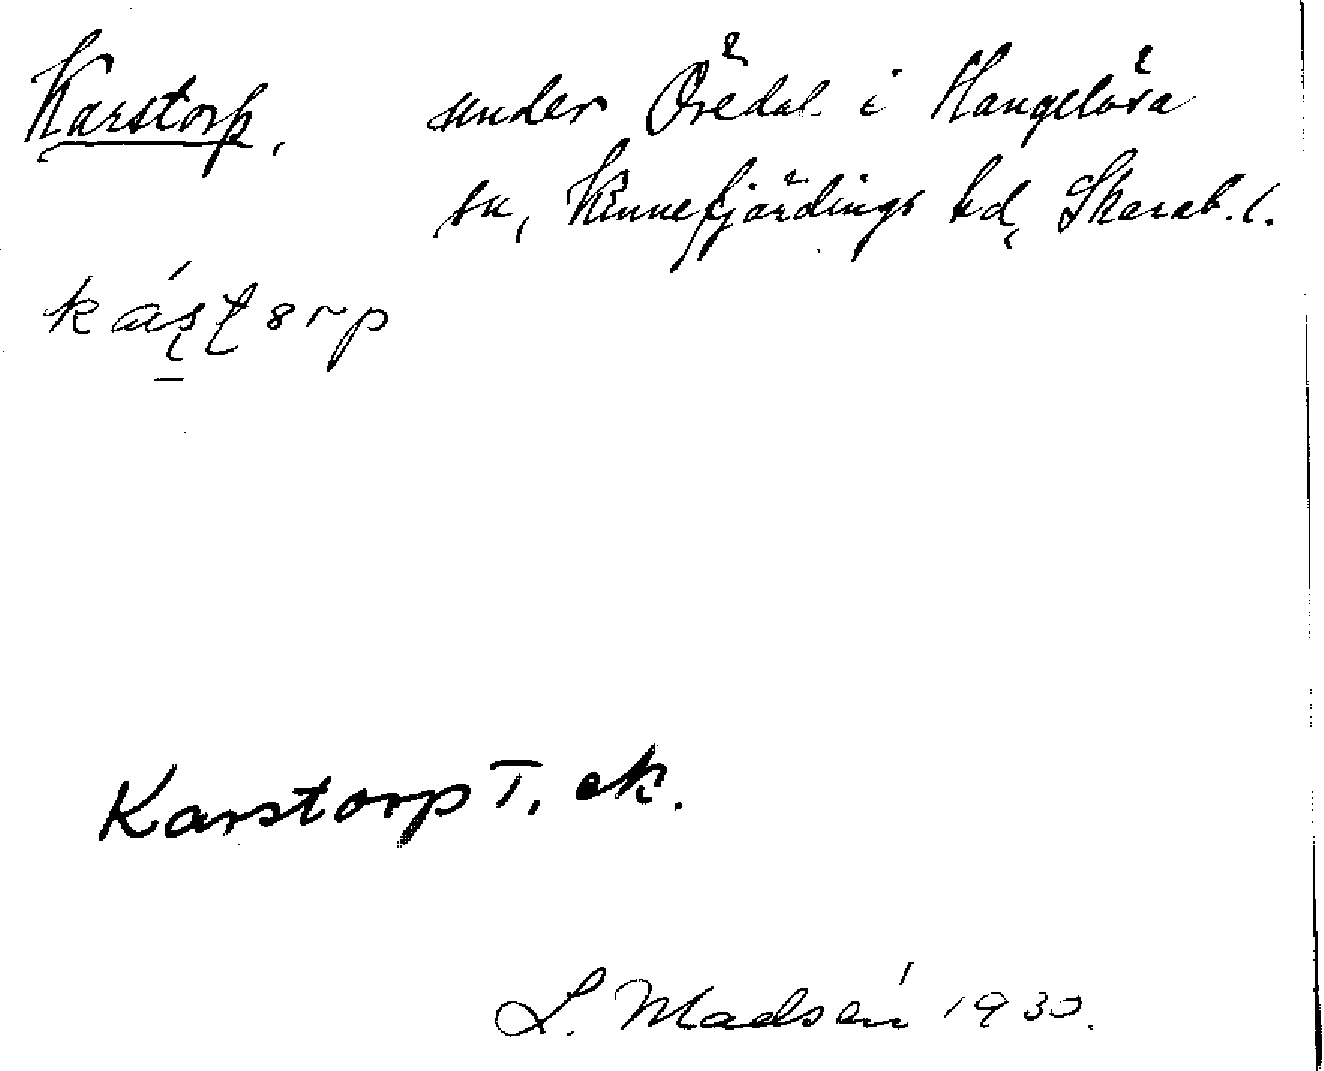 Karstorp, under Öredal i Hangelösa
sn, Kinnefjärdings hd, Skarab. l.
kástorp
Karstorp T, ek.
L. Madsén 1930.